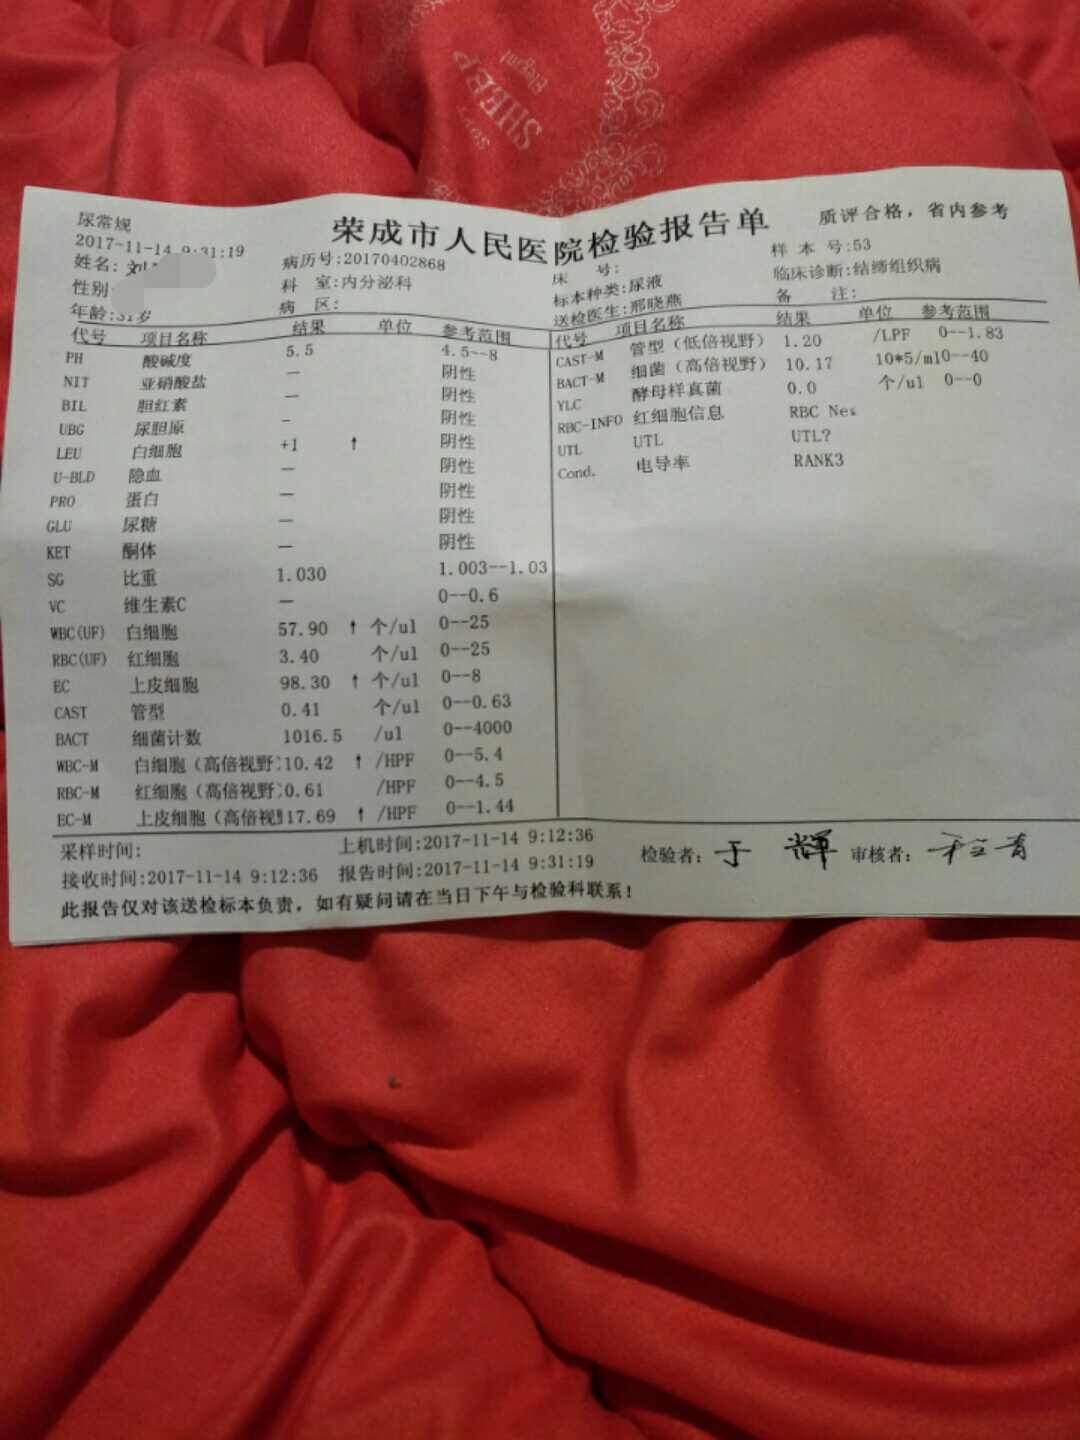 SOFT
SHEEP
Elegant
荣成市人民医院检验报告单
质评合格，省内参考
尿常规
2017-11-14 9:31:19
姓名: 刘
病历号:20170402868
床 号:
样 本 号:53
性别
科 室:内分泌科
标本种类:尿液
临床诊断:结缔组织病
年龄: 岁
病 区:
送检医生:邢晓燕
备 注:
代号 项目名称 结果 单位 参考范围
PH 酸碱度 5.5 4.5--8
NIT 亚硝酸盐 — 阴性
BIL 胆红素 — 阴性
UBG 尿胆原 - 阴性
LEU 白细胞 +1 ↑ 阴性
U-BLD 隐血 — 阴性
PRO 蛋白 — 阴性
GLU 尿糖 — 阴性
KET 酮体 — 阴性
SG 比重 1.030 1.003--1.03
VC 维生素C — 0--0.6
WBC(UF) 白细胞 57.90 ↑ 个/ul 0--25
RBC(UF) 红细胞 3.40 个/ul 0--25
EC 上皮细胞 98.30 ↑ 个/ul 0--8
CAST 管型 0.41 个/ul 0--0.63
BACT 细菌计数 1016.5 /ul 0--4000
WBC-M 白细胞（高倍视野 10.42 ↑ /HPF 0--5.4
RBC-M 红细胞（高倍视野 0.61 /HPF 0--4.5
EC-M 上皮细胞（高倍视 17.69 ↑ /HPF 0--1.44
代号 项目名称 结果 单位 参考范围
CAST-M 管型（低倍视野） 1.20 /LPF 0--1.83
BACT-M 细菌（高倍视野） 10.17 10*5/ml0--40
YLC 酵母样真菌 0.0 个/ul 0--0
RBC-INFO 红细胞信息 RBC Nes
UTL UTL UTL?
Cond. 电导率 RANK3
采样时间:
上机时间:2017-11-14 9:12:36
接收时间:2017-11-14 9:12:36
报告时间:2017-11-14 9:31:19
检验者: 于 辉
审核者:
此报告仅对该送检标本负责，如有疑问请在当日下午与检验科联系！